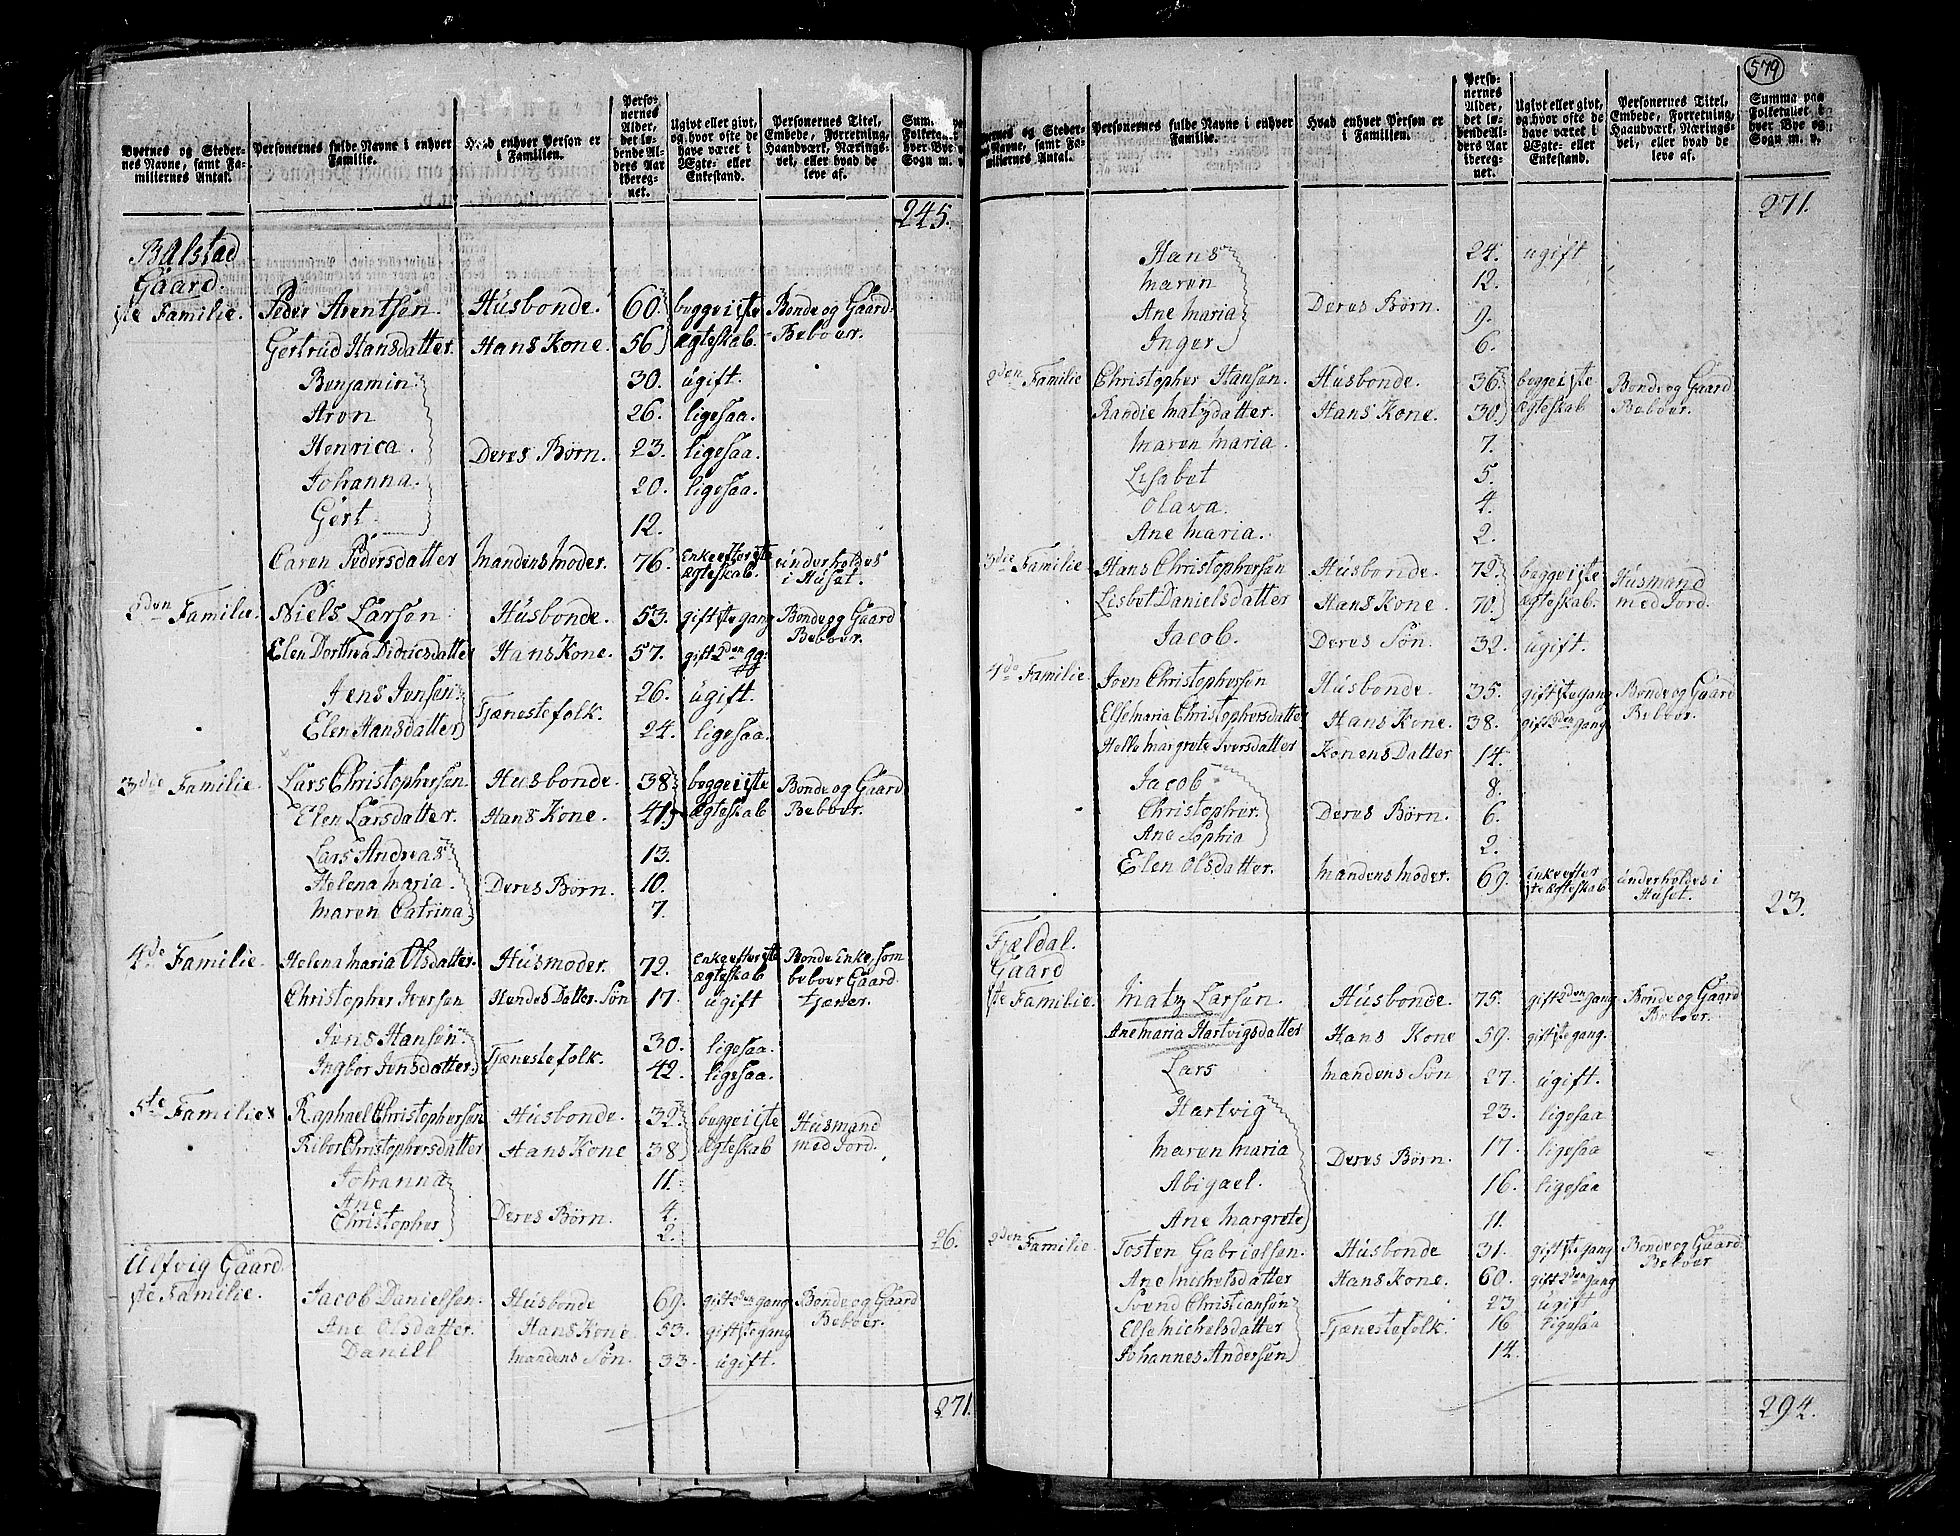 Byernes og Stedernes Navne, samt Familiernes Antal.
Personernes fulde Navne i enhver Familie.
Hvad enhver Person er i Familien.
Personernes Alder, det løbende Alders Aar iberegnet.
Ugivt eller givt, og hvor ofte de have været i Ægte- eller Enkestand.
Personernes Titel, Embede, Forretning, Haandværk, Næringsvei, eller hvad de leve af.
245.
Balstad
Gaard.
1ste Familie. Peder Arentsen Husbonde. 60 begge i 1ste Bonde og Gaard
Gertrud Hansdatter. Hans Kone. 56 Ægteskab. Beboer.
Benjamin 30. ugift.
Aron 26. ligesaa.
Henrica. Deres Børn. 23. ligesaa.
Johanna. 20. ligesaa.
Gert. 12.
Caren Pedersdatter Mandens Moder. 76. Enke efter 1ste Ægteskab. underholdes i Huset.
2den Familie. Niels Larsen Husbonde. 53. gift 1ste gang Bonde og Gaard
Elen Dorthea Didricsdatter Hans Kone. 57. gift 2den gg. Beboer.
Jens Jensen 26. ugift.
Elen Hansdatter Tjenestefolk. 24. ligesaa.
3die Familie. Lars Christophersen Husbonde. 38 begge i 1ste Bonde og Gaard
Elen Larsdatter. Hans Kone. 41. Ægteskab Beboer.
Lars Andreas 13.
Helena Maria. Deres Børn. 10.
Maren Catrina 7.
4de Familie. Helena Maria Olsdatter. Husmoder. 72. Enke efter 1ste Ægteskab Bonde Enke, som beboer Gaard
Christopher Iversen Hendes Datter Søn 17. ugift tjener.
Jens Hansen 30. ligesaa.
Ingbor Jensdatter. Tjenestefolk. 42. ligesaa.
5te Familie Raphael Christophersen Husbonde. 32. begge i 1ste Husmand
Ribor Christophersdatter Hans Kone 38 Ægteskab med Jord.
Johanna 11.
Ane 4.
Christopher Deres Børn. 2.
26.
Ulfvig Gaard.
1ste Familie. Jacob Danielsen. Husbonde 69. gift 2den gang Bonde og Gaard
Ane Olsdatter. Hans Kone 53. gift 1ste gang Beboer.
Daniel Mandens Søn. 33. ugift.
271.
579
Byernes og Stedernes Navne, samt Familiernes Antal.
Personernes fulde Navne i enhver Familie.
Hvad enhver Person er i Familien.
Personernes Alder, det løbende Alders Aar iberegnet.
Ugivt eller givt, og hvor ofte de have været i Ægte- eller Enkestand.
Personernes Titel, Embede, Forretning, Haandværk, Næringsvei, eller hvad de leve af.
Summa paa Folketallet i hver Bye og Sogn m. v.
271.
Hans 24. ugift
Maren 12.
Ane Maria Deres Børn. 9.
Inger 6.
2den Familie Christopher Hansen. Husbonde. 36 begge i 1ste Bonde og Gaard
Randie Matzdatter. Hans Kone. 30. Ægteskab Beboer.
Maren Maria. 7.
Lisabet 5.
Olava. 4.
Ane Maria. 2.
3die Familie Hans Christophersen Husbonde. 72. begge i 1ste Husmand
Lisbet Danielsdatter Hans Kone. 70. Ægteskab. med Jord.
Jacob. Deres Søn 32. ugift.
4de Familie Joen Christophersen Husbonde. 35. gift 1ste gang Bonde og Gaard
Else Maria Christophersdatter Hans Kone. 38. gift 2den gang Beboer.
Helle Margrete Iversdatter Konens Datter 14.
Jacob 8.
Christopher. Deres Børn. 6.
Ane Sophia 2.
Elen Olsdatter. Mandens Moder. 69. Enke efter 1ste Ægteskab underholdes i Huset.
23.
Fjældal.
Gaard
1ste Familie. Matz Larsen. Husbonde. 75. gift 2den gang Bonde og Gaard
Ane Maria Hartvigsdatter Hans Kone 59. gift 1ste gang. Beboer.
Lars Mandens Søn 27. ugift.
Hartvig 23. ligesaa
Maren Maria Deres Børn. 17. ligesaa
Abigael. 16. ligesaa
Ane Margrete 11.
2den Familie. Tosten Gabrielsen. Husbonde 31. gift 1ste gang Bonde og Gaard
Ane Michelsdatter Hans Kone. 60. gift 2den gang Beboer
Svend Christiansen 23. ugift
Else Michelsdatter Tjænestefolk. 16 ligesaa
Johannes Andersen 14.
294.